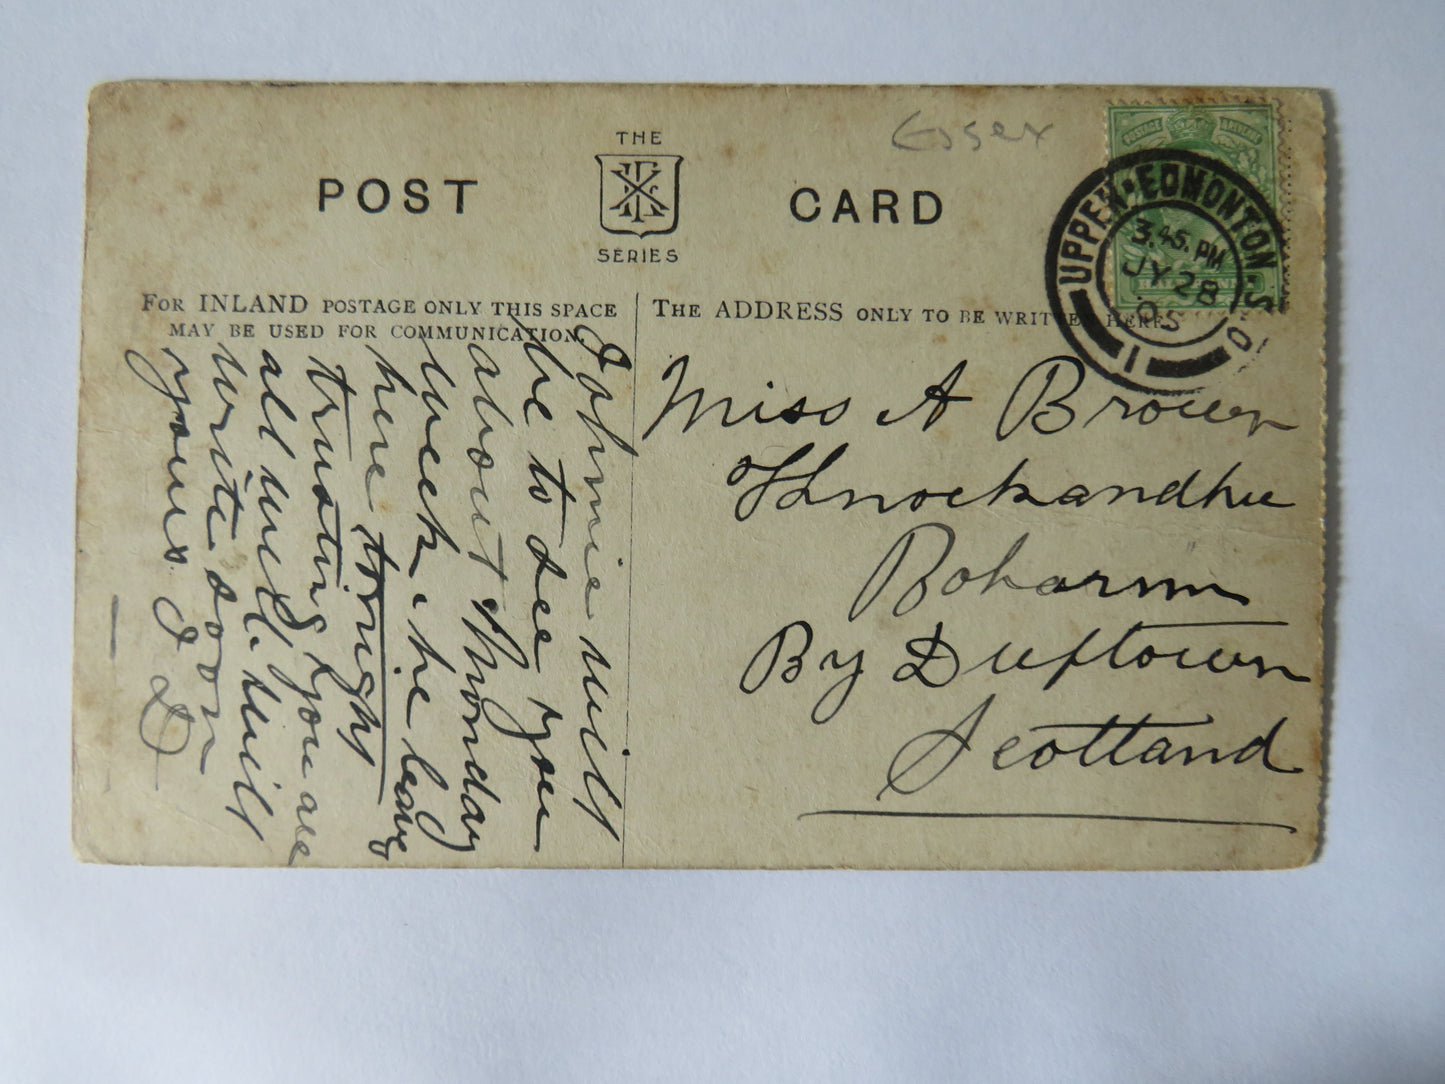 Essex
POST CARD
THE
SERIES
FOR INLAND POSTAGE ONLY THIS SPACE
MAY BE USED FOR COMMUNICATION.
THE ADDRESS ONLY TO BE WRITTEN HERE
UPPER EDMONTON S.O
3.45. PM
JY 28
05
1
Johnie will
be to see you
about Thonday
week. he leavs
here tonight
trusting you are
all well. will
write soon
yours J D
Miss A Brown
Knockandhu
Boharm
By Duftown
Scottand